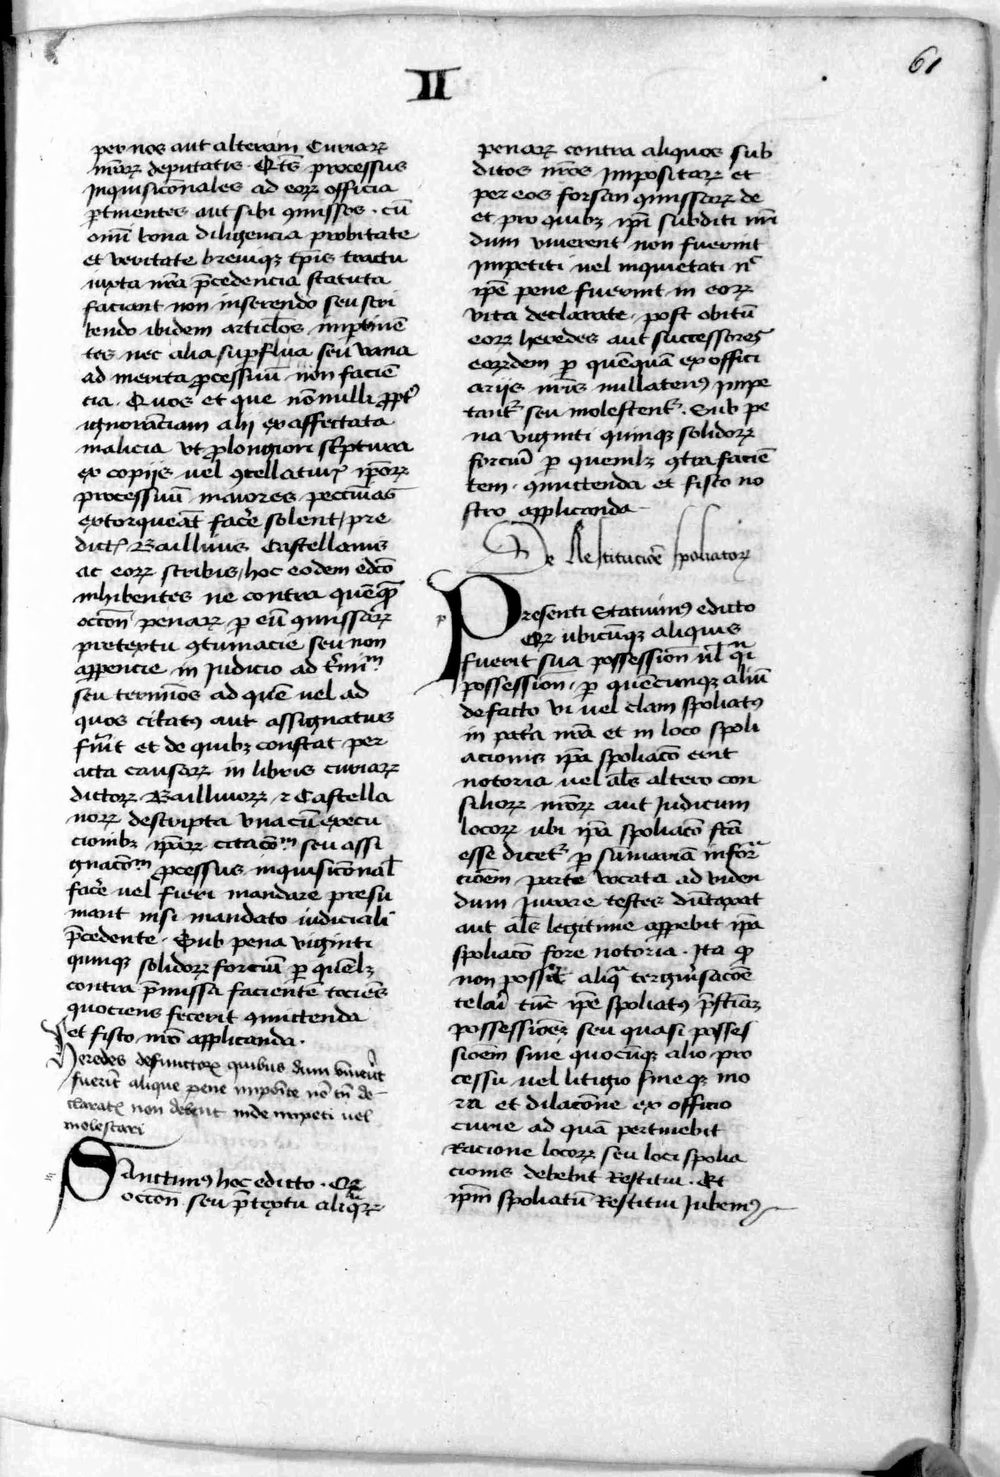 II
61
per nos aut alteram Curiarꝝ
nr̄arꝝ deputatis · Qͣts processus
Inquisicōnales ad eorꝝ officia
ꝑtinentes aut sibi ꝯmissos · cū
omī bona diligencia probitate
et veritate breuiqꝫ tp̄is tractu
iuxta nr̄a p̄cedencia statuta
faciant non inserendo seu scri
bendo ibidem articl̄os impertinē
tes nec alia suꝑflua seu vana
ad merita ꝓcessuū non faciē
cia · Quos et que nōnulli ꝓpt̉
ignoranciam alij ex affectata
malicia vt ꝓ longiori sc̉ptura
ex copiis uel ꝯcellaturꝭ ip̄orꝝ
processuū maiores peccūias
extorqueāt facẽ solent / pre
dictꝭ Balliuus Castellanis
ac eorꝝ scribis / hoc eodem edc̄o
inhibentes ne contra quēqͣꝫ
occōn penarꝝ ꝑ eū ꝯmissarꝝ
pretextu ꝯtumacie seu non
aꝑencie in Judicio ad t̄minū
seu terminos ad quē uel ad
quos citatꝰ aut assignatus
fūit et de quibꝫ constat per
acta causarꝝ in libris curiarꝝ
dictorꝝ Balliuorꝝ ⁊ Castella
norꝝ descripta vna cū execu
cionibꝫ ip̄arꝝ citacōnū seu assi
gnacōnū ꝓcessus inquisicōnal̄
facẽ uel fieri mandare presu
mant nisi mandato iudiciali
p̄cedente · Sub pena viginti
quinqꝫ solidorꝝ forciū ꝑ quēlꝫ
contra p̄missa facientē tociēs
quociens fecerit ꝯmittenda
et fisco nr̄o applicanda ·
Heredes defunctorꝝ quibus dum viuerēt
fuerūt alique pene imposite nō tn̄ de-
claratꝭ non debent inde impeti uel
molestari
Sanctimꝰ hoc edicto · Qꝫ
occōn seu p̄textu aliquarꝝ
penarꝝ contra aliquos sub
ditos nr̄os impositarꝝ et
per eos forsan ꝯmissarꝝ de
et pro quibꝫ ip̄i subditi nr̄i
dum viuerent non fuerint
Impetiti uel inquietati nͨ
ip̄e pene fuerint in eorꝝ
vita declarate · post obitū
eorꝝ heredes aut successores
eorꝝdem ꝑ quēquā ex offici
ariis nr̄is nullatenꝰ impe
tant᷑ seu molestent᷑ · Sub pe
na viginti quinqꝫ solidorꝝ
forciū ꝑ quemlꝫ ꝯtra faciē
tem · ꝯmittenda et fisco no
stro applicanda
De Restitucōe spoliatorꝝ
Presenti Statuimꝰ edicto
Qꝫ ubicūqꝫ aliquis
fuerit sua possessioīn ul̄ qͣi
possessioīn · ꝑ quēcunqꝫ aliū
de facto vi uel clam spoliatꝰ
in pat̉a nr̄a et in loco spoli
acionis ip̄a spoliacō erit
notoria uel al̄s altero con
siliorꝝ nr̄orꝝ aut Judicum
locorꝝ ubi ip̄a spoliacō fc̄a
esse dicet᷑ ꝑ sūmariā inforͣ
cioēm parte vocata ad viden
dum Jurare testes dūtaxat
aut al̄s legitime aꝑebit ip̄a
spoliacō fore notoria · Ita ꝙ
non possit aliqͣ tergiūsacōe
celari tūc ip̄e spoliatꝰ p̄stinaꝫ
possessioēꝫ seu quasi posses
sioēm sine quocūqꝫ alio pro
cessu uel litigio sineqꝫ mo
ra et dilacōne ex officio
curie ad quā pertinebit
Racione locorꝝ seu loci spolia
cionis debebit Restitui · Et
ip̄m spoliatū Restitui Jubemꝰ